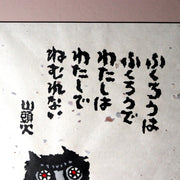 ふくろうは
ふくろうで
わたしは
わたしで
ねむれない
山頭火